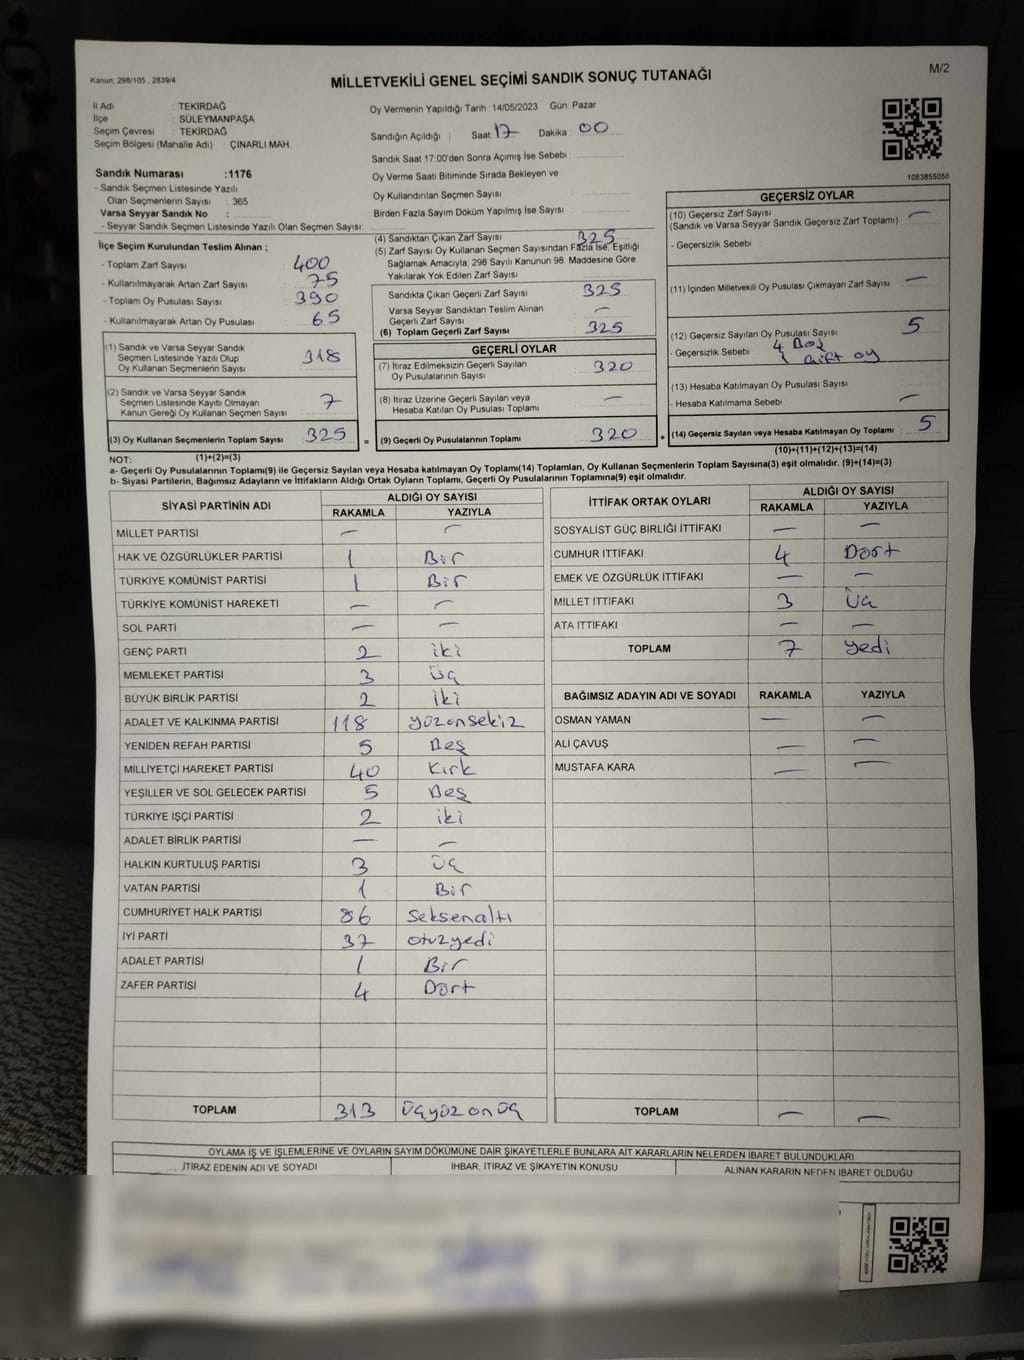 Kanun, 298/105 , 2839/4
MİLLETVEKİLİ GENEL SEÇİMİ SANDIK SONUÇ TUTANAĞI
M/2
İl Adı : TEKİRDAĞ
İlçe : SÜLEYMANPAŞA
Seçim Çevresi : TEKİRDAĞ
Seçim Bölgesi (Mahalle Adı) : ÇINARLI MAH.
Oy Vermenin Yapıldığı Tarih : 14/05/2023 Gün: Pazar
Sandığın Açıldığı | Saat 17 Dakika : 00
Sandık Saat 17:00'den Sonra Açımış İse Sebebi :
Oy Verme Saati Bitiminde Sırada Bekleyen ve
Oy Kullandırılan Seçmen Sayısı :
Birden Fazla Sayım Döküm Yapılmış İse Sayısı :
1083855058
Sandık Numarası :1176
- Sandık Seçmen Listesinde Yazılı
Olan Seçmenlerin Sayısı : 365
Varsa Seyyar Sandık No :
- Seyyar Sandık Seçmen Listesinde Yazılı Olan Seçmen Sayısı:
İlçe Seçim Kurulundan Teslim Alınan ;
- Toplam Zarf Sayısı : 400
- Kullanılmayarak Artan Zarf Sayısı : 75
- Toplam Oy Pusulası Sayısı : 390
- Kullanılmayarak Artan Oy Pusulası : 65
(1) Sandık ve Varsa Seyyar Sandık
Seçmen Listesinde Yazılı Olup
Oy Kullanan Seçmenlerin Sayısı : 318
(2) Sandık ve Varsa Seyyar Sandık
Seçmen Listesinde Kayıtlı Olmayan
Kanun Gereği Oy Kullanan Seçmen Sayısı : 7
(3) Oy Kullanan Seçmenlerin Toplam Sayısı : 325 =
(4) Sandıktan Çıkan Zarf Sayısı : 325
(5) Zarf Sayısı Oy Kullanan Seçmen Sayısından Fazla İse, Eşitliği
Sağlamak Amacıyla, 298 Sayılı Kanunun 98. Maddesine Göre
Yakılarak Yok Edilen Zarf Sayısı :
Sandıkta Çıkan Geçerli Zarf Sayısı : 325
Varsa Seyyar Sandıktan Teslim Alınan
Geçerli Zarf Sayısı : —
(6) Toplam Geçerli Zarf Sayısı : 325
GEÇERLİ OYLAR
(7) İtiraz Edilmeksizin Geçerli Sayılan
Oy Pusulalarının Sayısı : 320
(8) İtiraz Üzerine Geçerli Sayılan veya
Hesaba Katılan Oy Pusulası Toplamı : —
(9) Geçerli Oy Pusulalarının Toplamı : 320 +
GEÇERSİZ OYLAR
(10) Geçersiz Zarf Sayısı : —
(Sandık ve Varsa Seyyar Sandık Geçersiz Zarf Toplamı)
- Geçersizlik Sebebi :
(11) İçinden Milletvekili Oy Pusulası Çıkmayan Zarf Sayısı : —
(12) Geçersiz Sayılan Oy Pusulası Sayısı : 5
- Geçersizlik Sebebi : 4 Boş
1 çift oy
(13) Hesaba Katılmayan Oy Pusulası Sayısı :
- Hesaba Katılmama Sebebi : —
(14) Geçersiz Sayılan veya Hesaba Katılmayan Oy Toplamı : 5
NOT: (1)+(2)=(3)
(10)+(11)+(12)+(13)=(14)
a- Geçerli Oy Pusulalarının Toplamı(9) ile Geçersiz Sayılan veya Hesaba katılmayan Oy Toplamı(14) Toplamları, Oy Kullanan Seçmenlerin Toplam Sayısına(3) eşit olmalıdır. (9)+(14)=(3)
b- Siyasi Partilerin, Bağımsız Adayların ve İttifakların Aldığı Ortak Oyların Toplamı, Geçerli Oy Pusulalarının Toplamına(9) eşit olmalıdır.
SİYASİ PARTİNİN ADI ALDIĞI OY SAYISI
RAKAMLA YAZIYLA
MİLLET PARTİSİ — —
HAK VE ÖZGÜRLÜKLER PARTİSİ 1 Bir
TÜRKİYE KOMÜNİST PARTİSİ 1 Bir
TÜRKİYE KOMÜNİST HAREKETİ — —
SOL PARTİ — —
GENÇ PARTİ 2 iki
MEMLEKET PARTİSİ 3 üç
BÜYÜK BİRLİK PARTİSİ 2 iki
ADALET VE KALKINMA PARTİSİ 118 yüzonsekiz
YENİDEN REFAH PARTİSİ 5 Beş
MİLLİYETÇİ HAREKET PARTİSİ 40 Kırk
YEŞİLLER VE SOL GELECEK PARTİSİ 5 Beş
TÜRKİYE İŞÇİ PARTİSİ 2 iki
ADALET BİRLİK PARTİSİ — —
HALKIN KURTULUŞ PARTİSİ 3 üç
VATAN PARTİSİ 1 Bir
CUMHURİYET HALK PARTİSİ 86 Seksenaltı
İYİ PARTİ 37 otuzyedi
ADALET PARTİSİ 1 Bir
ZAFER PARTİSİ 4 Dört
TOPLAM 313 üçyüzonüç
İTTİFAK ORTAK OYLARI ALDIĞI OY SAYISI
RAKAMLA YAZIYLA
SOSYALİST GÜÇ BİRLİĞİ İTTİFAKI — —
CUMHUR İTTİFAKI 4 Dört
EMEK VE ÖZGÜRLÜK İTTİFAKI — —
MİLLET İTTİFAKI 3 üç
ATA İTTİFAKI — —
TOPLAM 7 yedi
BAĞIMSIZ ADAYIN ADI VE SOYADI RAKAMLA YAZIYLA
OSMAN YAMAN — —
ALİ ÇAVUŞ — —
MUSTAFA KARA — —
TOPLAM — —
OYLAMA İŞ VE İŞLEMLERİNE VE OYLARIN SAYIM DÖKÜMÜNE DAİR ŞİKAYETLERLE BUNLARA AİT KARARLARIN NELERDEN İBARET BULUNDUKLARI
İTİRAZ EDENİN ADI VE SOYADI İHBAR, İTİRAZ VE ŞİKAYETİN KONUSU ALINAN KARARIN NEDEN İBARET OLDUĞU